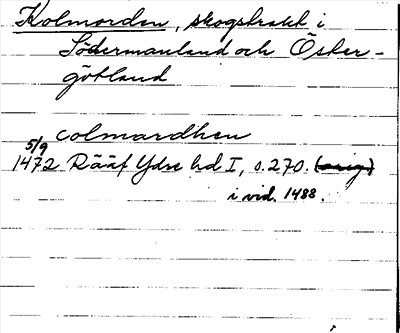 Kolmorden, skogstrakt i
Södermanland och Öster-
götland
colmardhen
5/9
1472 Rääf Ydre hd I, s. 270. (orig)
i vid. 1488.